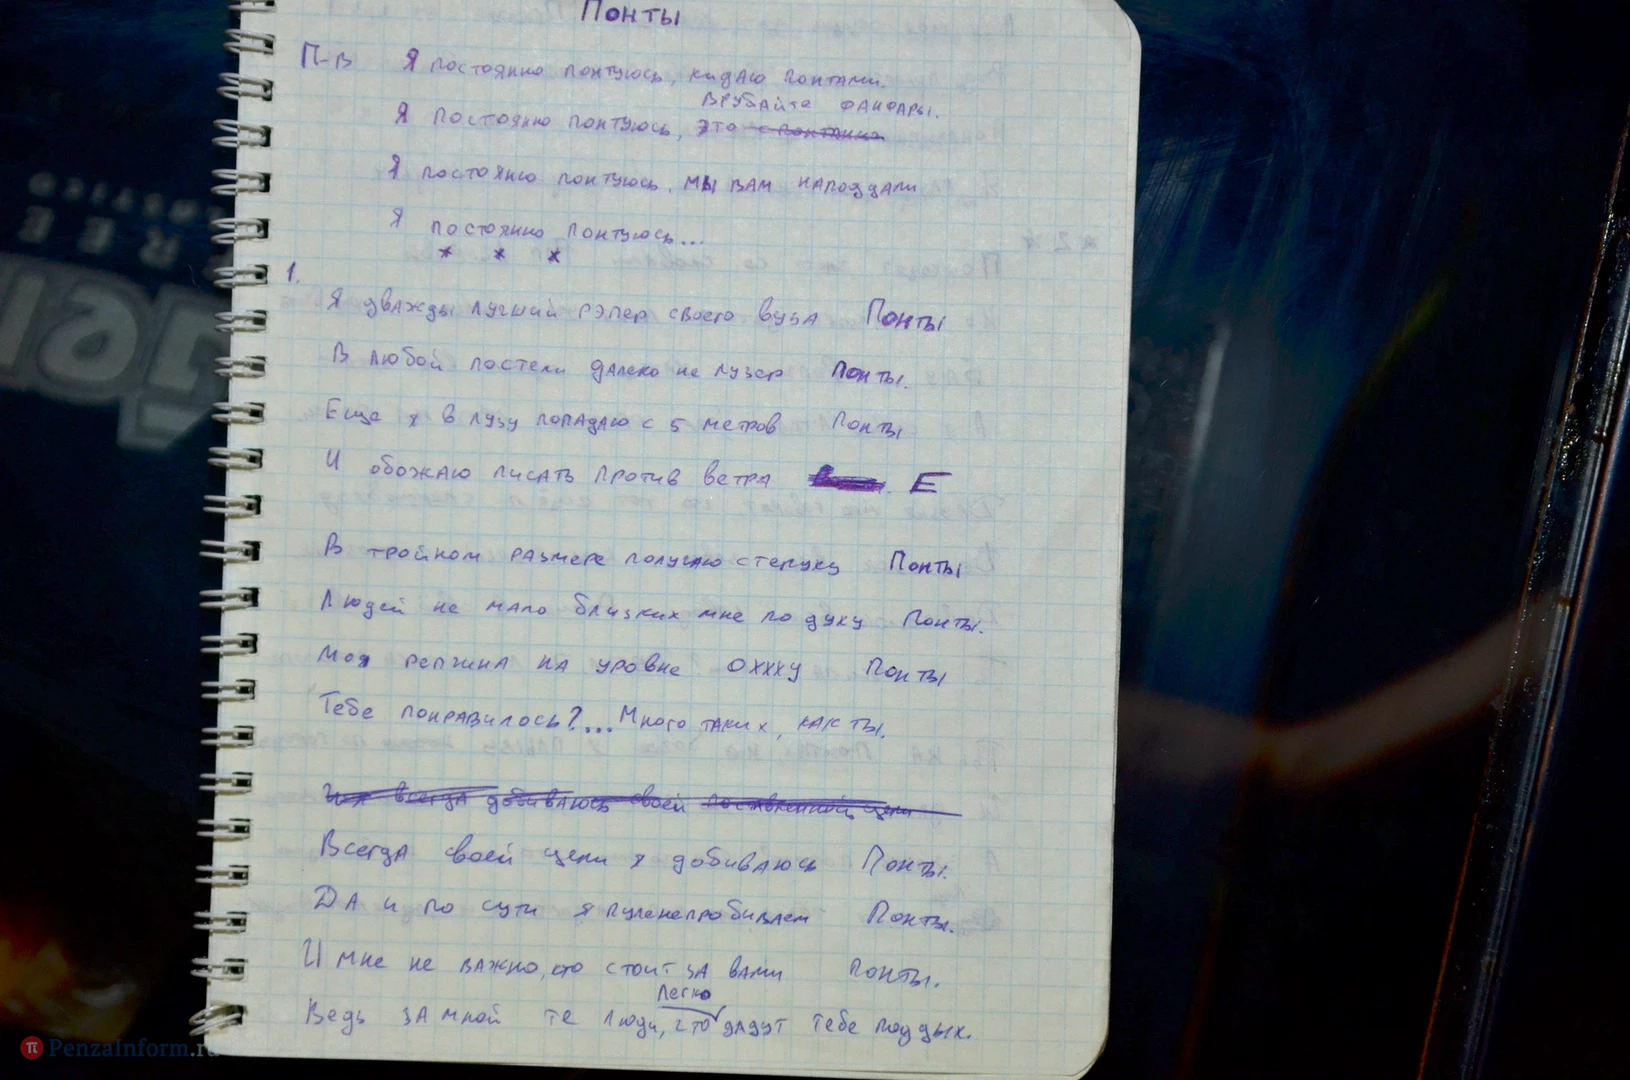 Понты
П-в Я постоянно понтуюсь, кидаю понтами.
врубайте фанфары.
Я постоянно понтуюсь, это
Я постоянно понтуюсь, мы вам наподдали
Я постоянно понтуюсь...
* * *
1.
Я дважды лучший рэпер своего вуза Понты
В любой постели далеко не лузер Понты.
Еще я в лузу попадаю с 5 метров Понты
И обожаю писать против ветра Е
В тройном размере получаю степуху Понты
Людей не мало близких мне по духу Понты.
Моя репжина на уровне Оххху Понты
Тебе понравилось?... Много таких, как ты.
И я всегда добиваюсь своей поставленной цели
Всегда своей цели я добиваюсь Понты.
Да и по сути я пуленепробиваем Понты.
И мне не важно, кто стоит за вами Понты.
легко
Ведь за мной те люди, что дадут тебе поддых.
PenzaInform.ru